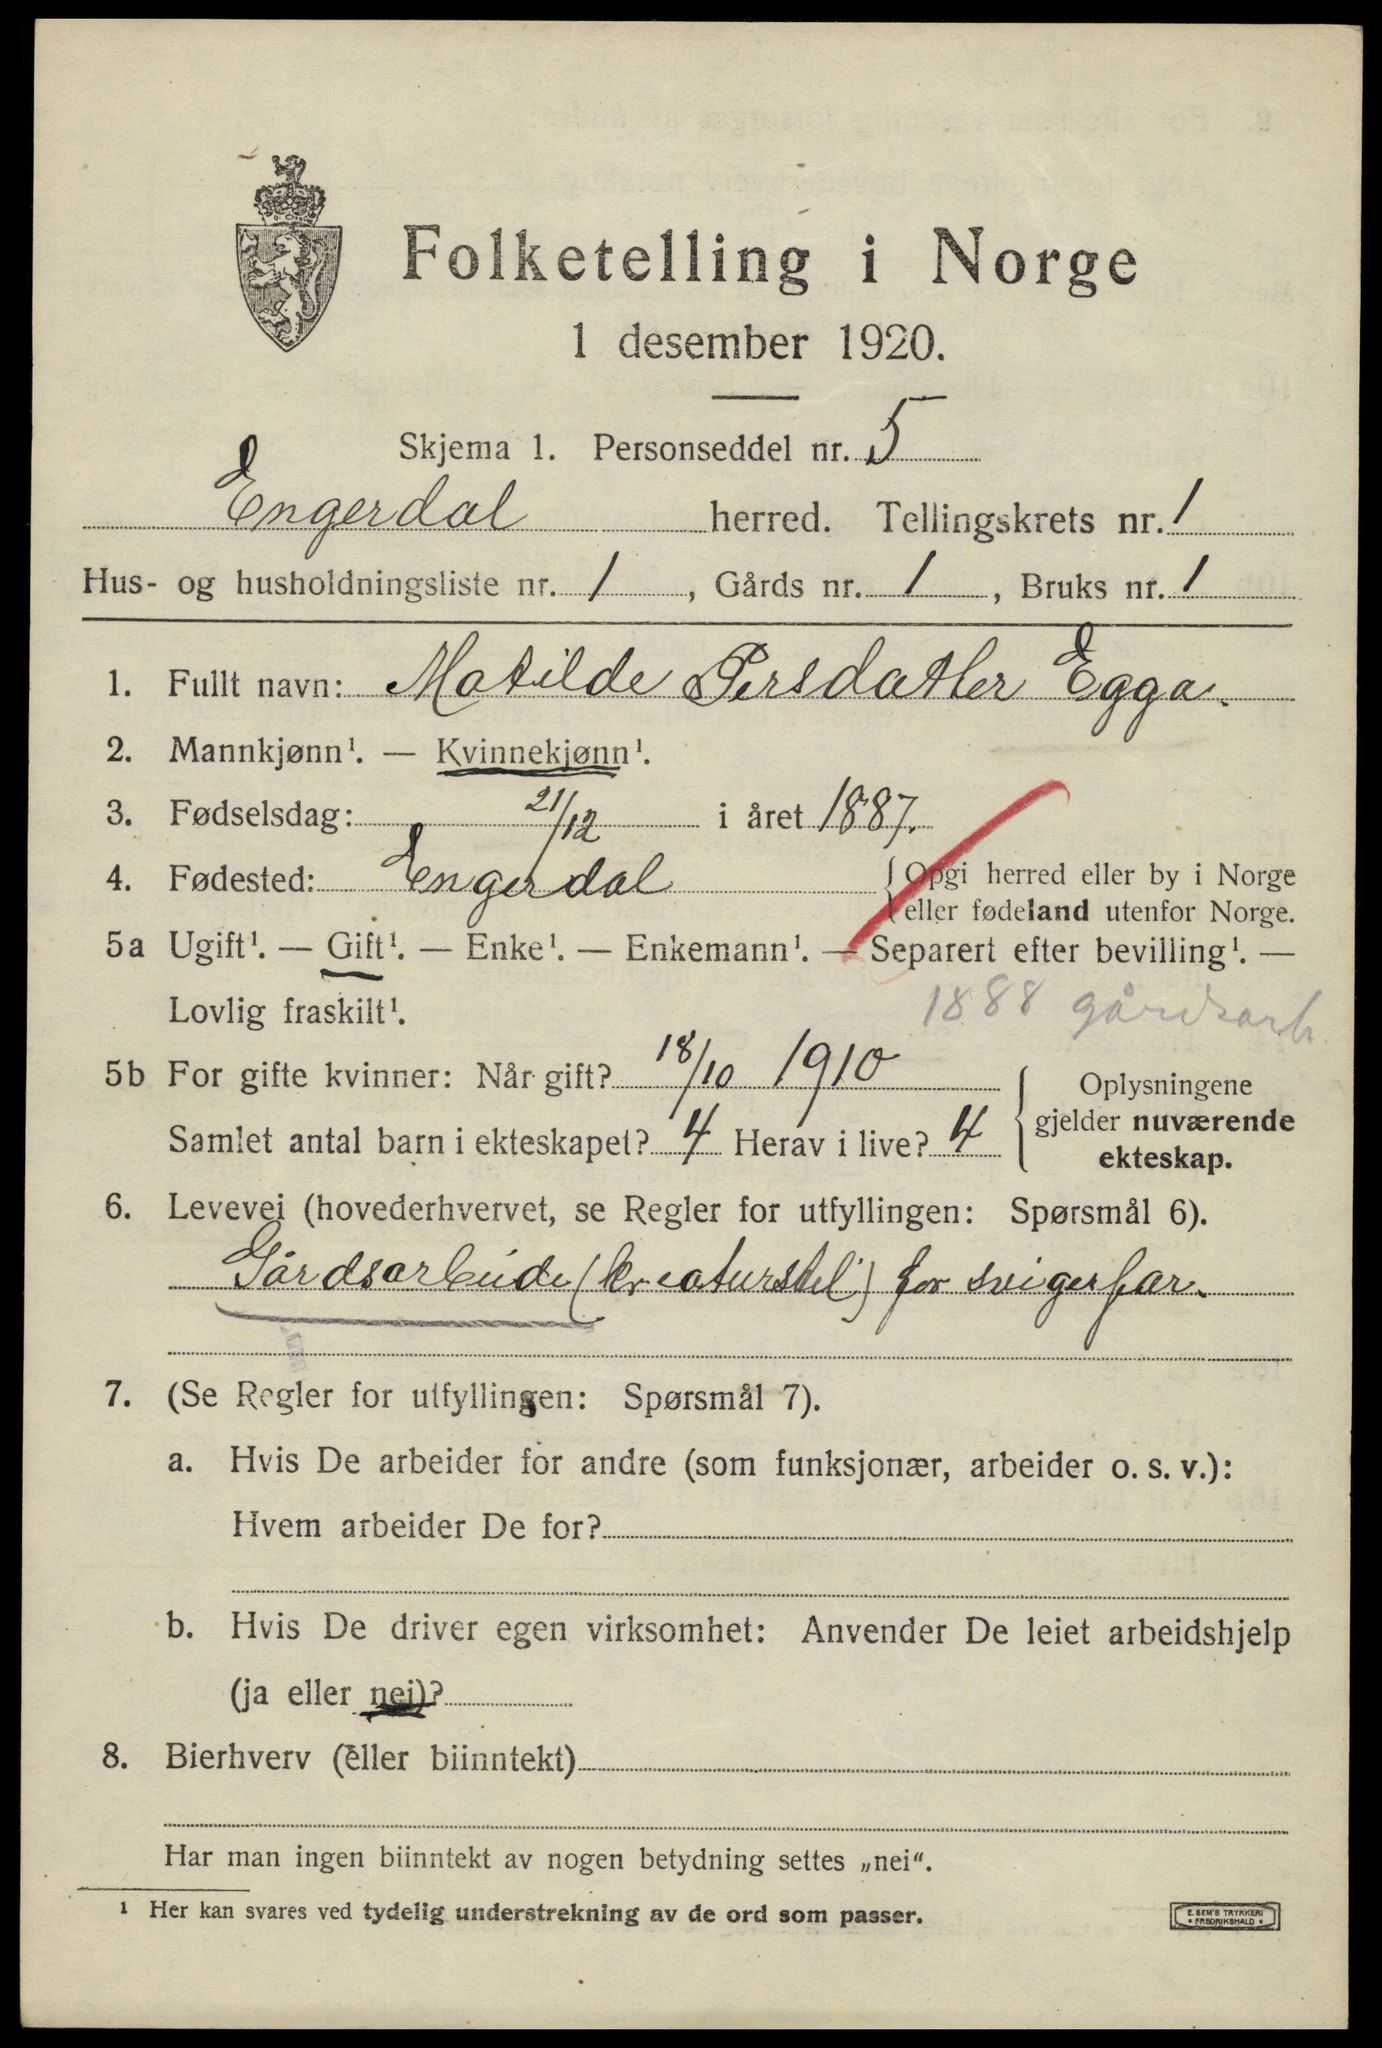 Folketelling i Norge
1 desember 1920.
Skjema 1. Personseddel nr. 5
Engerdal herred. Tellingskrets nr. 1
Hus- og husholdningsliste nr. 1, Gårds nr. 1, Bruks nr. 1
1. Fullt navn: Matilde Persdatter Egga.
2. Mannkjønn¹. — Kvinnekjønn¹.
3. Fødselsdag: 21/12 i året 1887.
4. Fødested: Engerdal {Opgi herred eller by i Norge
eller fødeland utenfor Norge.
5a Ugift¹. — Gift¹. — Enke¹. — Enkemann¹. — Separert efter bevilling¹. —
Lovlig fraskilt¹.
1888 gårdsarb.
5b For gifte kvinner: Når gift? 18/10 1910
Samlet antal barn i ekteskapet? 4 Herav i live? 4
{Oplysningene
gjelder nuværende
ekteskap.
6. Levevei (hovederhvervet, se Regler for utfyllingen: Spørsmål 6).
Gårdsarbeide (kreaturstel) for svigerfar.
7. (Se Regler for utfyllingen: Spørsmål 7).
a. Hvis De arbeider for andre (som funksjonær, arbeider o. s. v.):
Hvem arbeider De for?
b. Hvis De driver egen virksomhet: Anvender De leiet arbeidshjelp
(ja eller nei)?
8. Bierhverv (eller biinntekt)
Har man ingen biinntekt av nogen betydning settes „nei“.
¹ Her kan svares ved tydelig understrekning av de ord som passer.
E. SEM'S TRYKKERI
• FREDRIKSHALD •